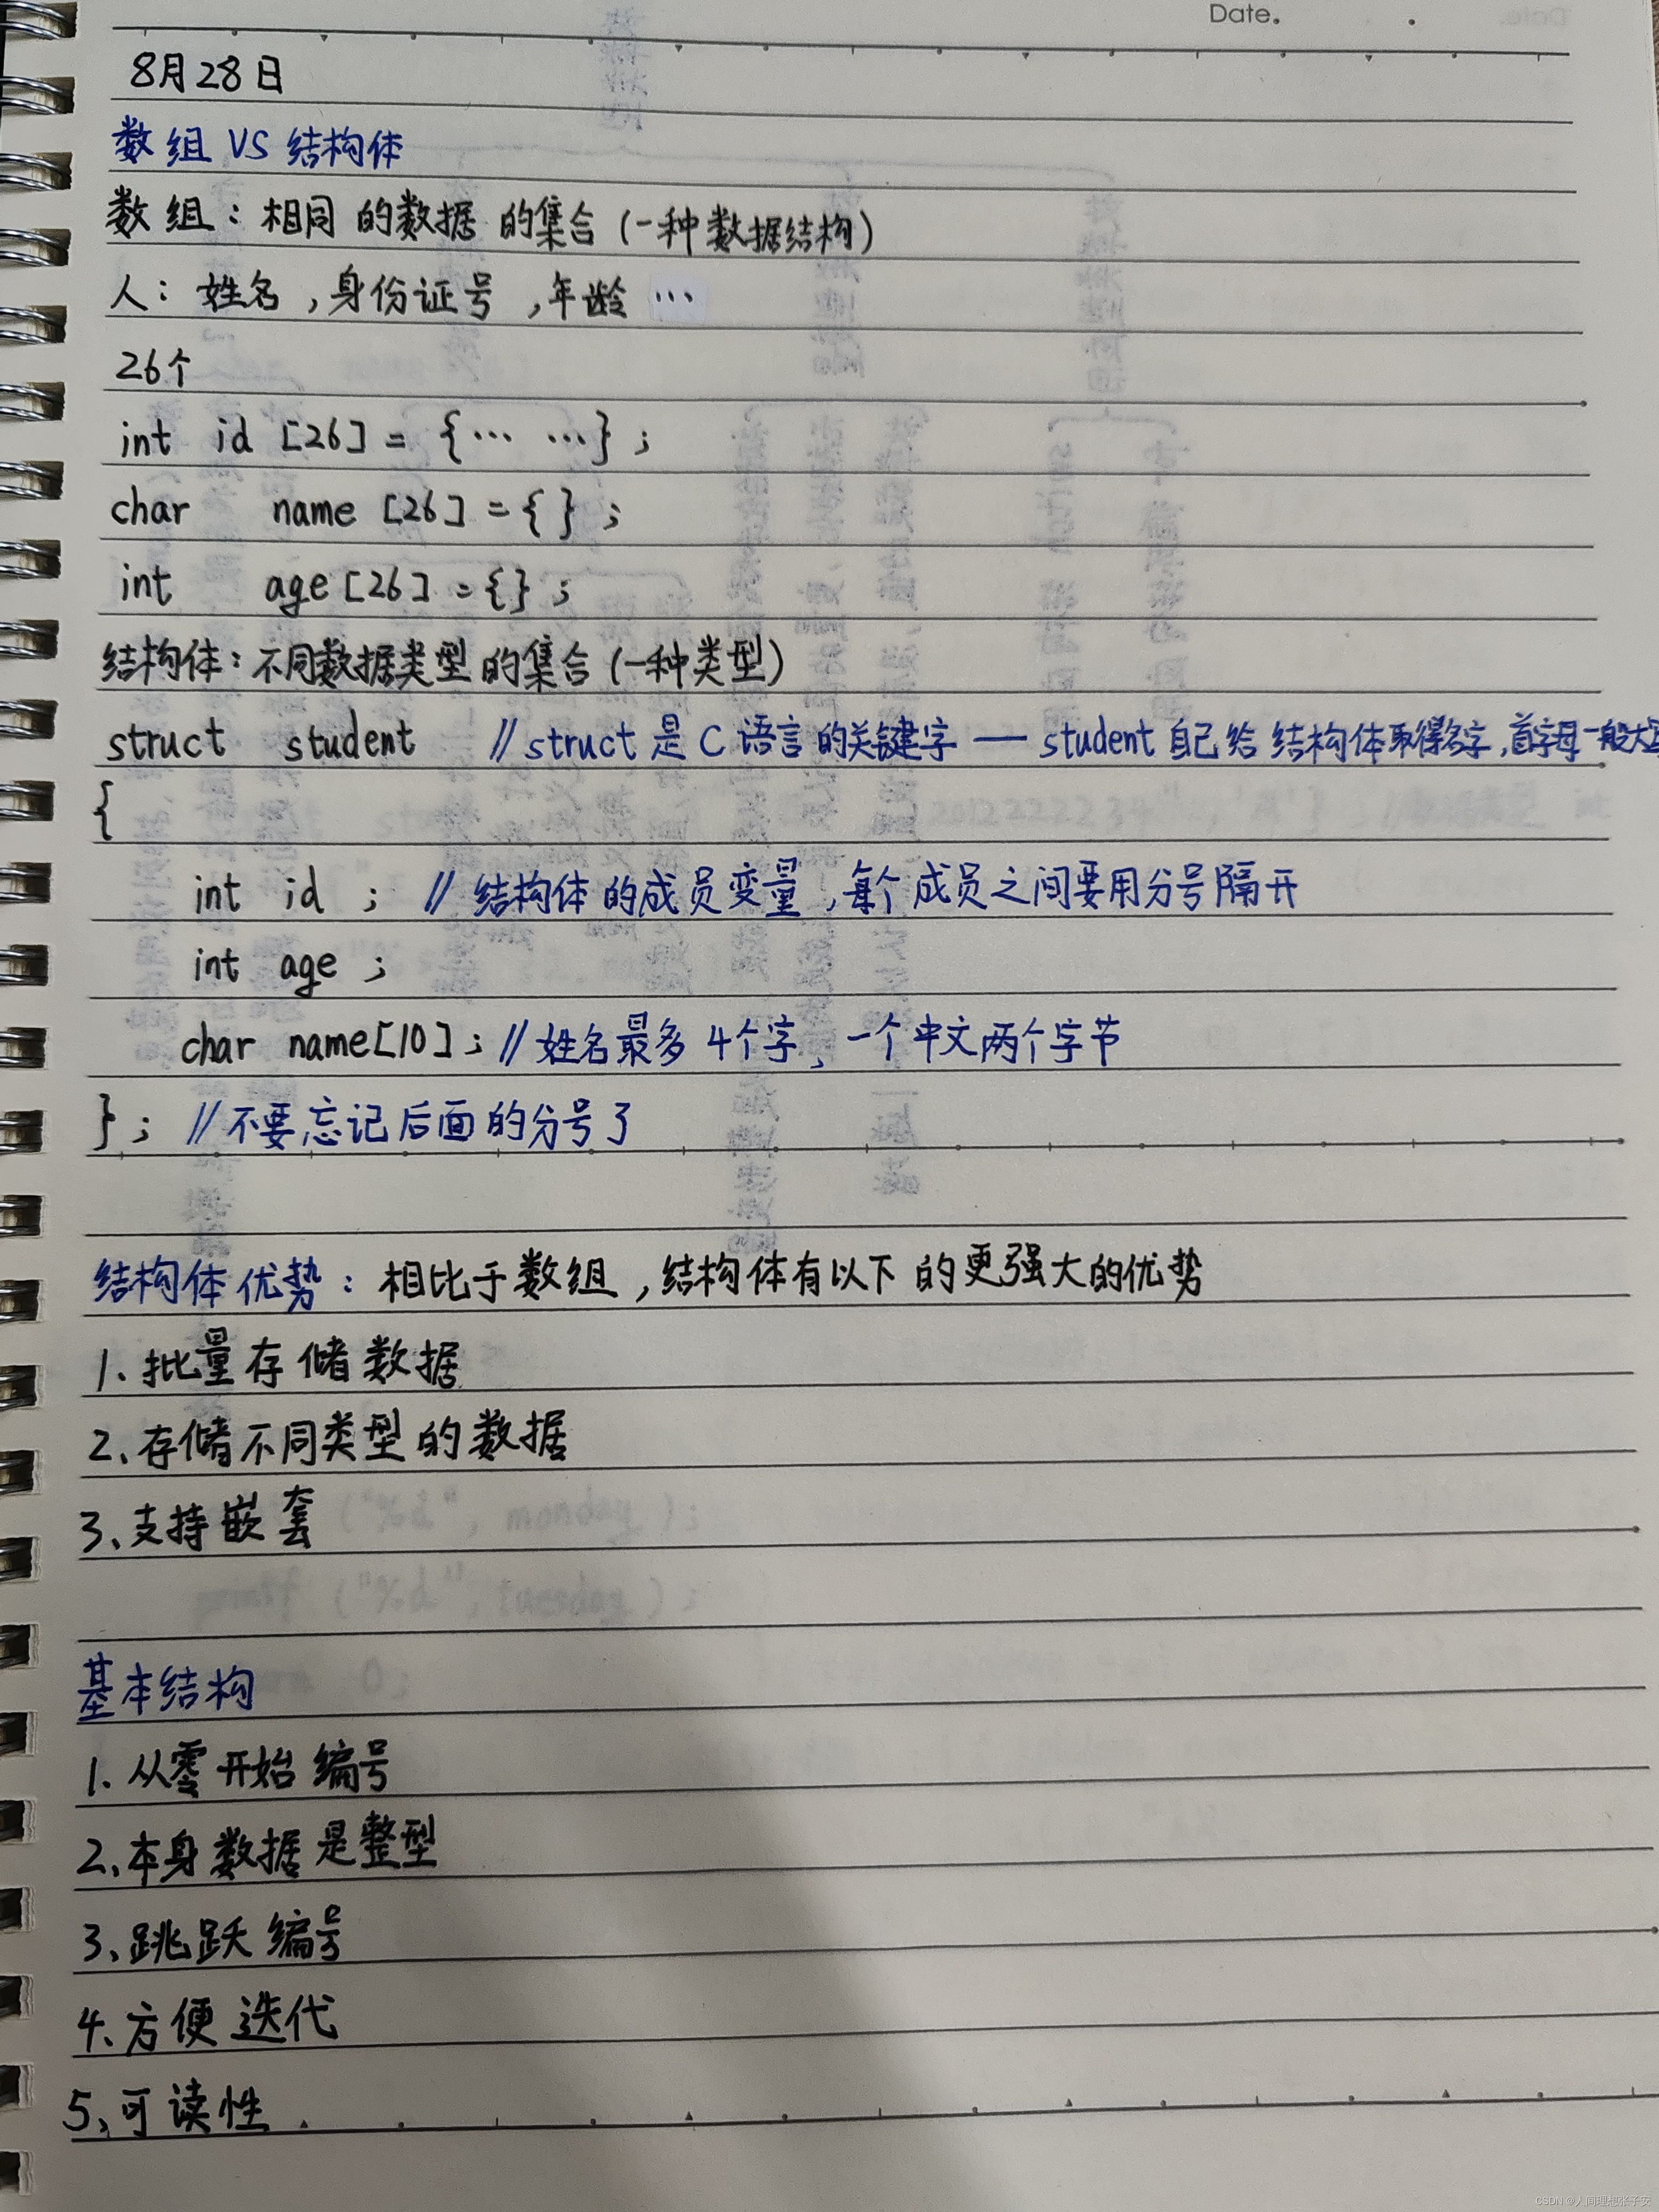 Date.
8月28日
数组 VS 结构体
数组：相同的数据的集合（一种数据结构）
人：姓名，身份证号，年龄 …
26个
int id [26] = {… …} ;
char name [26] = { } ;
int age [26] = {} ;
结构体：不同数据类型的集合（一种类型）
struct student // struct 是 C 语言的关键字 — student 自己给结构体取得名字，首字母一般大写
{
int id ; // 结构体的成员变量，每个成员之间要用分号隔开
int age ;
char name[10] ; // 姓名最多4个字、一个中文两个字节
} ; // 不要忘记后面的分号了
结构体优势：相比于数组，结构体有以下的更强大的优势
1、批量存储数据
2、存储不同类型的数据
3、支持嵌套
基本结构
1、从零开始编号
2、本身数据是整型
3、跳跃编号
4、方便迭代
5、可读性
CSDN @人间理想张子安